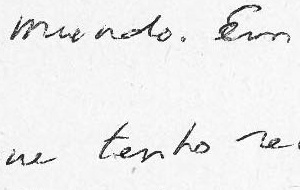 mundo. Em
ue tenho re